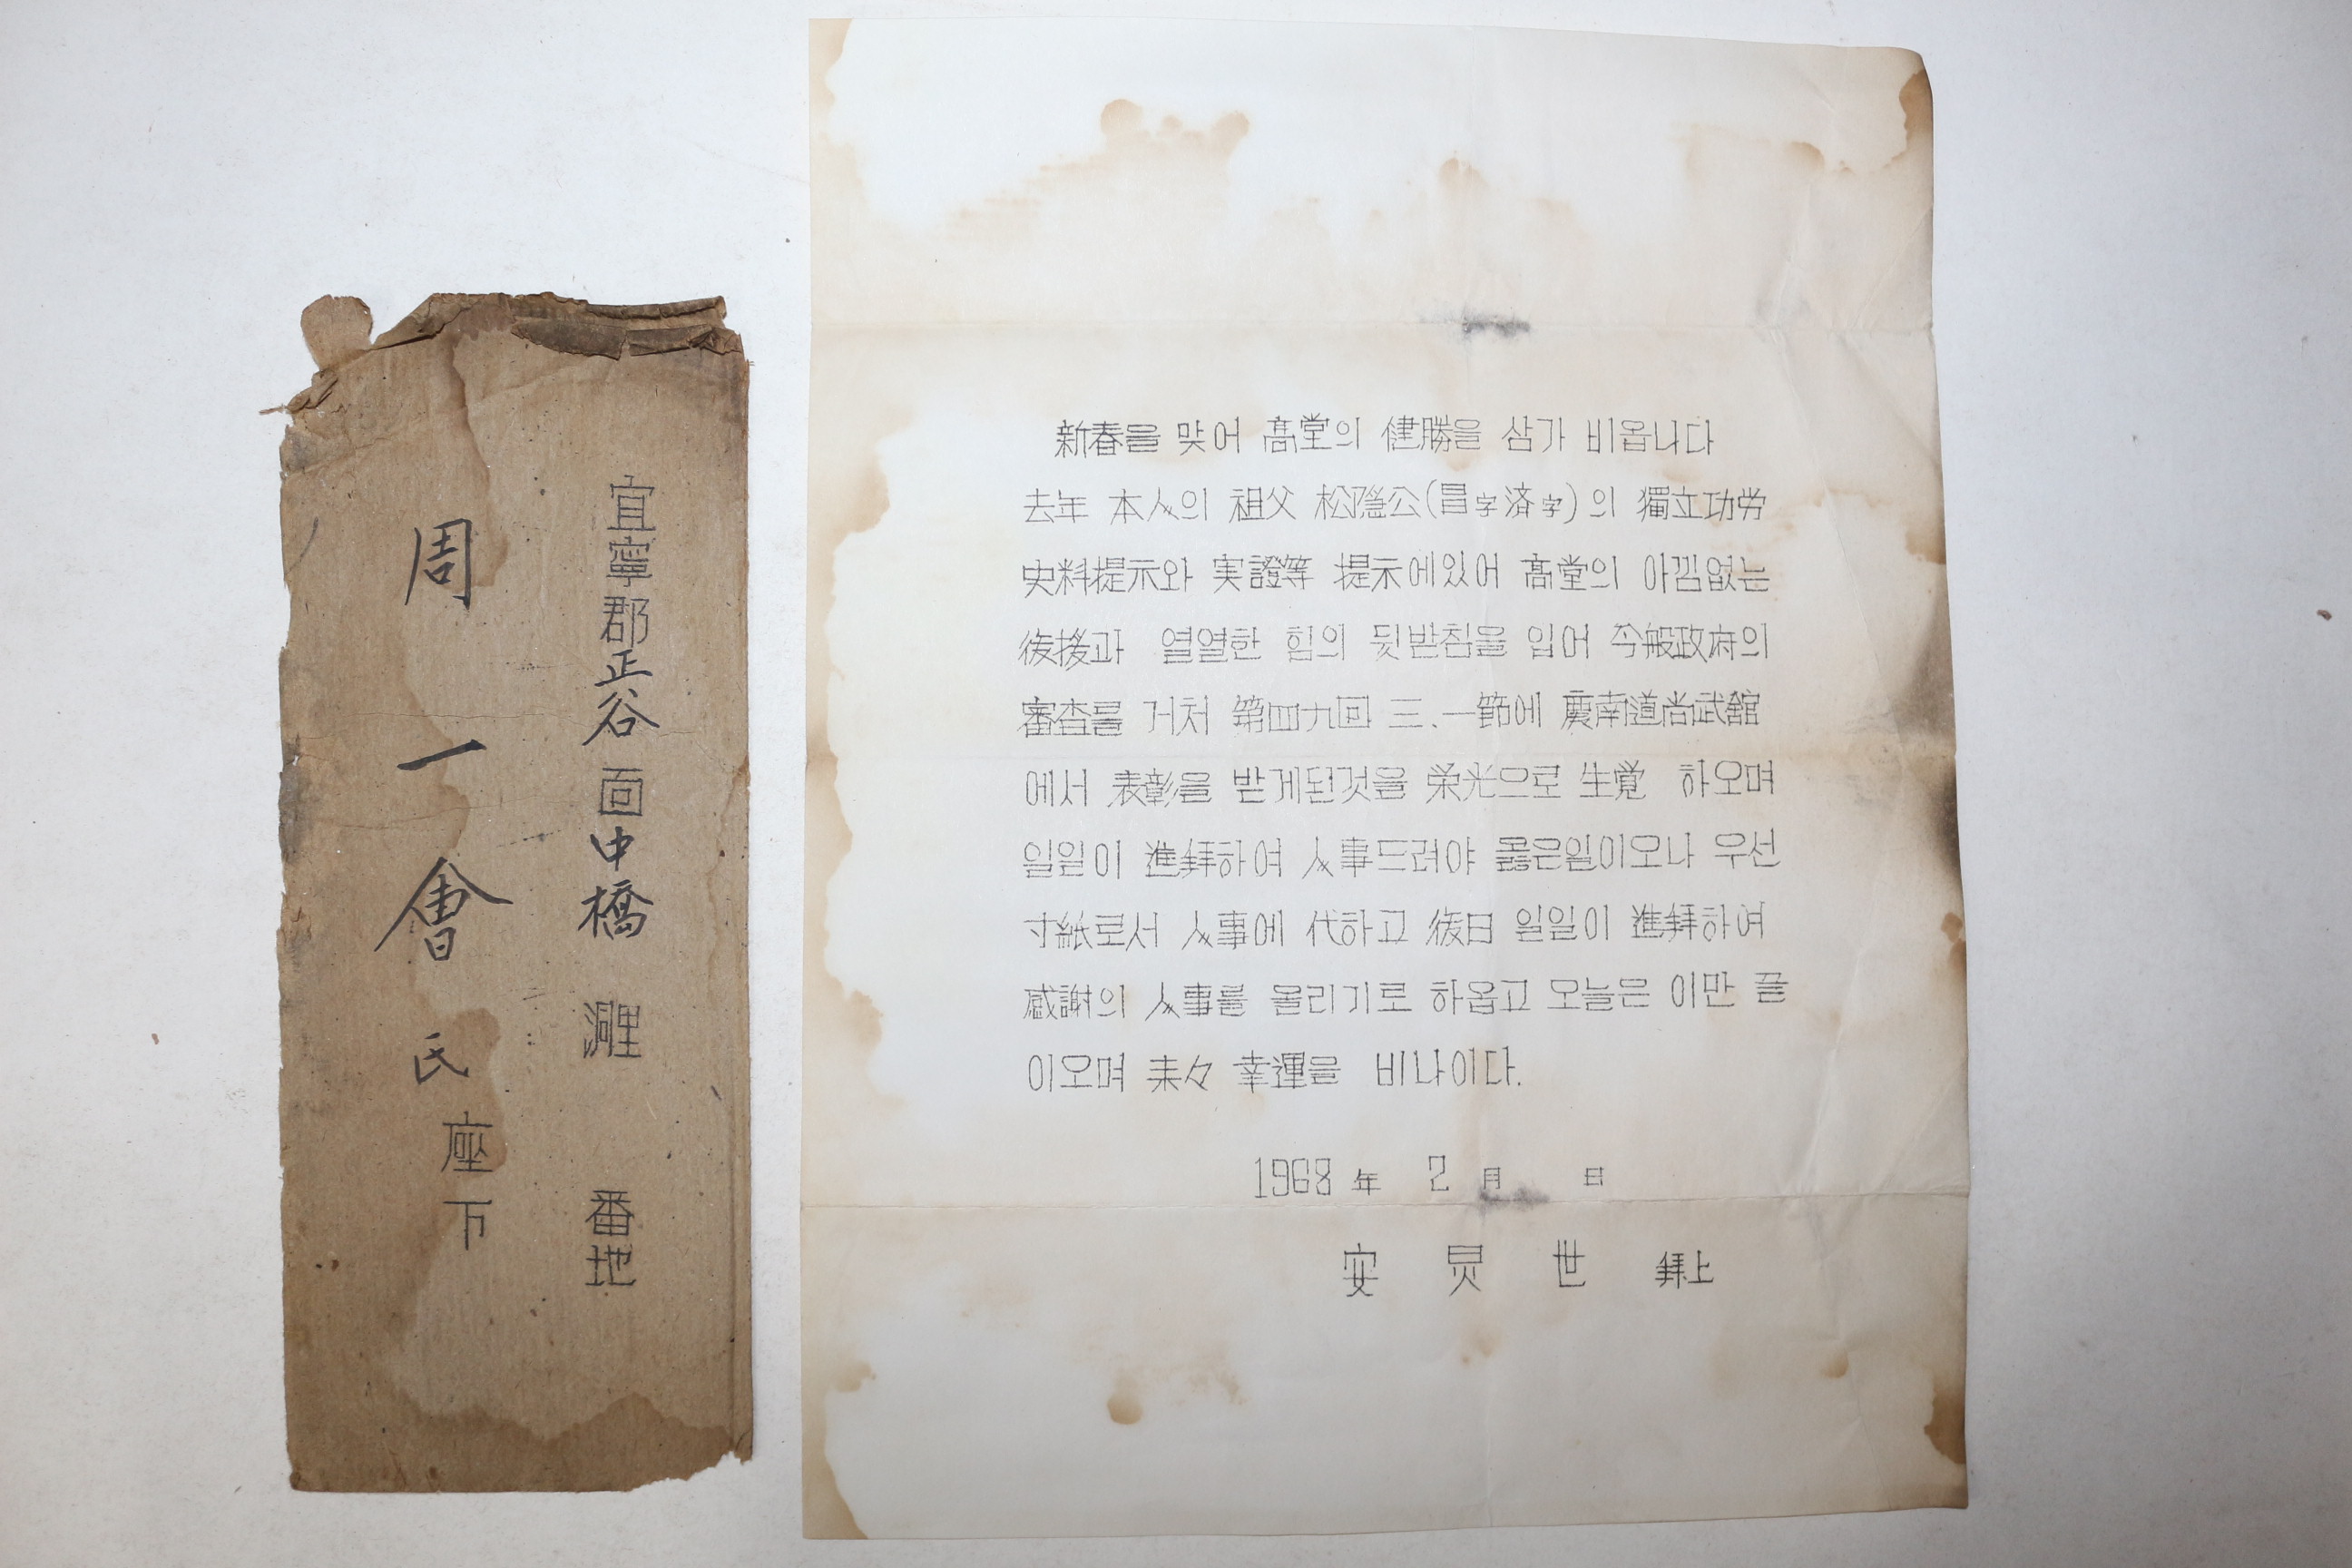 宜寧郡正谷面中橋 里 番地
周一會 氏 座下
新春을 맞어 髙堂의 健勝을 삼가 비옵니다
去年 本人의 祖父 松隱公(昌字済字)의 獨立功労
史料提示와 実證等 提示에있어 髙堂의 아낌없는
後援과 열열한 힘의 뒷받침을 입어 今般政府의
審査를 거처 第四九回 三.一節에 慶南道尚武舘
에서 表彰을 받게된것을 栄光으로 生覚 하오며
일일이 進拜하여 人事드려야 옳은일이오나 우선
寸紙로서 人事에 代하고 後日 일일이 進拜하여
感謝의 人事를 올리기로 하옵고 오늘은 이만 끝
이오며 来々 幸運을 비나이다.
1968年 2月 日
安 炅 世 拜上